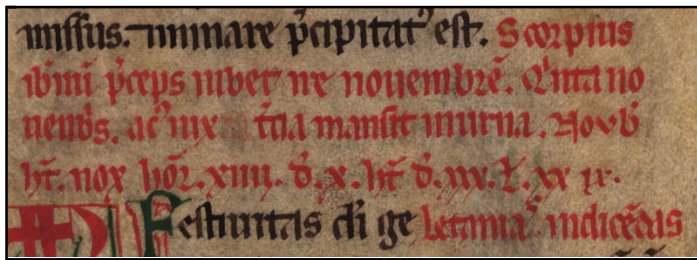 missus. in mare p̄cipitatꝰ est. Scorpius
ibernū p̄ceps iubet ire nouembrē. Q̇nta no
uenb̄s. acꝰ uix t̄cia mansit in urna. Nouƀ
ħt. nox hoꝝ. xiiii. d̄. x. ħt d̄. xxx. L. xx ix.
Festiuitas di ge Letaniaꝫ indicēdas